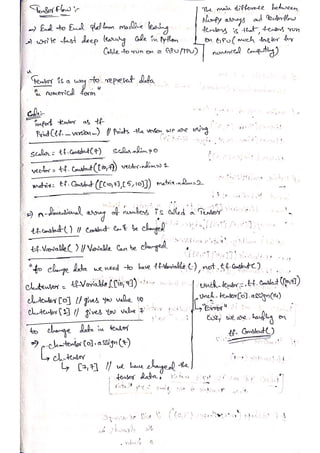 Tensor Flow :-
→ End to End platform machine learning
→ write fast deep learning Code in Python
(able to run on a GPU/TPU)
The main difference between
Numpy arrays and Tensorflow
tensors is that, tensors run
on GPU (much faster for
numerical computing)
"Tensor is a way to represent data
in numerical form"
Code:-
import tensor as tf
Print(tf.__version__) // Prints the version we are using
scalar = tf.Constant(7) scalar.ndim → 0
vector = tf.Constant([10,7]) vector.ndim → 1
matrix = tf.Constant([[10,7],[5,10]]) matrix.ndim → 2
⇒ n-dimensional array of numbers is called a Tensor
tf.constant() // Constant Can't be changed
tf.Variable() // Variable Can be changed
"to change data we need to have tf.Variable(), not tf.Constant()
ch.tensor = tf.Variable([10,7])
ch.tensor[0] // gives you value 10
ch.tensor[1] // gives you value 7
unch.tensor = tf.Constant([10,7])
unch.tensor[0].assign(7)
↳ "Error"
we are on
tf.Constant()
to change data in tensor
⇒ ch.tensor[0].assign(7)
↳ ch.tensor
↳ [7,7] // we have changed the
tensor data.